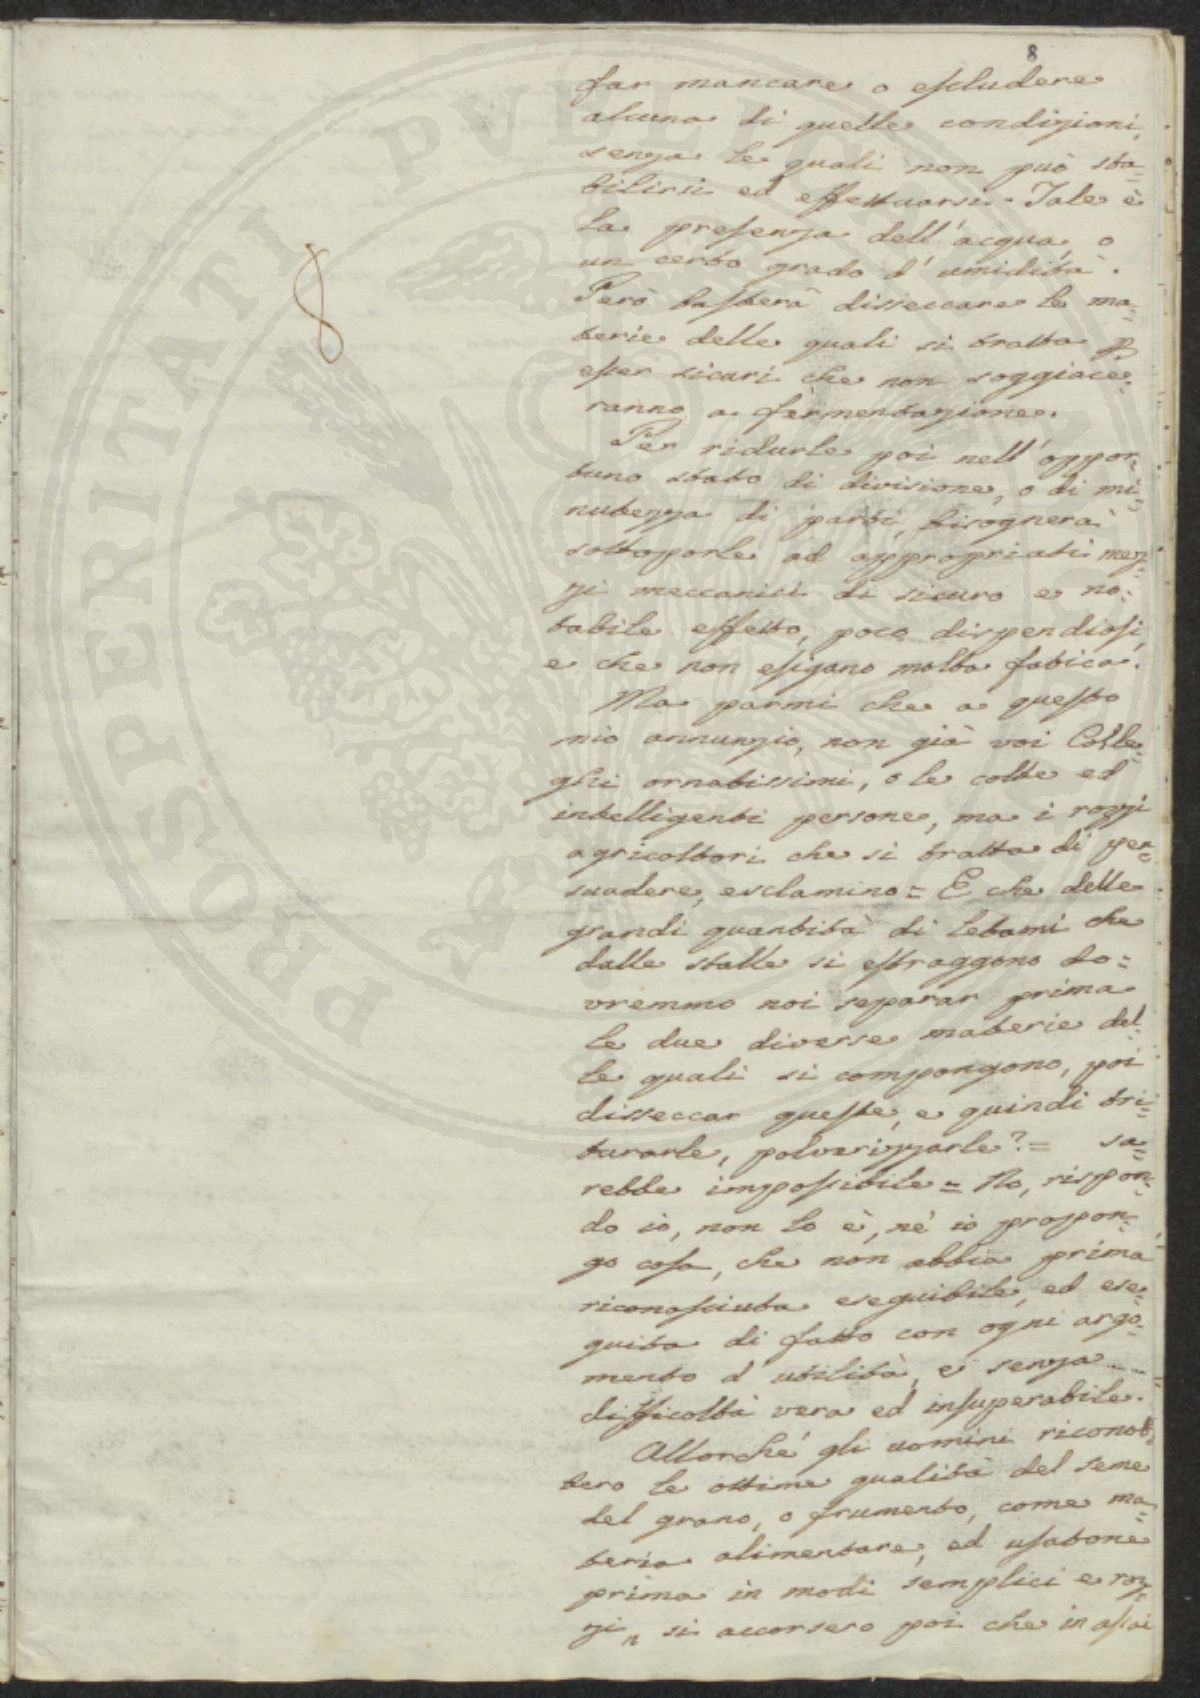 8
far mancare o escludere
alcuna di quelle condizioni,
senza le quali non può sta=
bilirsi ed effettuarsi. Tale è
la presenza dell'acqua, o
un certo grado d'umidità.
Però basterà disseccare le ma=
terie delle quali si tratta p
esser sicuri che non soggiace=
ranno a fermentazione.
Per ridurle poi nell'oppor=
tuno stato di divisione, o di mi=
nutezza di parti, bisognerà
sottoporle ad appropriati mez=
zi meccanici di sicuro e no=
tabile effetto, poco dispendiosi,
e che non esigano molta fatica.
Ma parmi che a questo
mio annunzio, non già voi Colle=
ghi ornatissimi, o le colte ed
intelligenti persone, ma i rozzi
agricoltori che si tratta di per=
suadere, esclamino = E che delle
grandi quantità di letami che
dalle stalle si estraggono do=
vremmo noi separar prima
le due diverse materie del=
le quali si compongono, poi
disseccar queste, e quindi tri=
turarle, polverizzarle? = Sa=
rebbe impossibile = No, rispon=
do io, non lo è, nè io propon=
go cosa, che non abbia prima
riconosciuta eseguibile, ed ese=
guita di fatto con ogni argo=
mento d'utilità, e senza
difficoltà vera ed insuperabile.
Allorché gli uomini riconob=
bero le ottime qualità del seme
del grano, o frumento, come ma=
teria alimentare, ed usatone
prima in modi semplici e roz=
zi, si accorsero poi che in assai
8
PROSPERITATI PVBLICAE